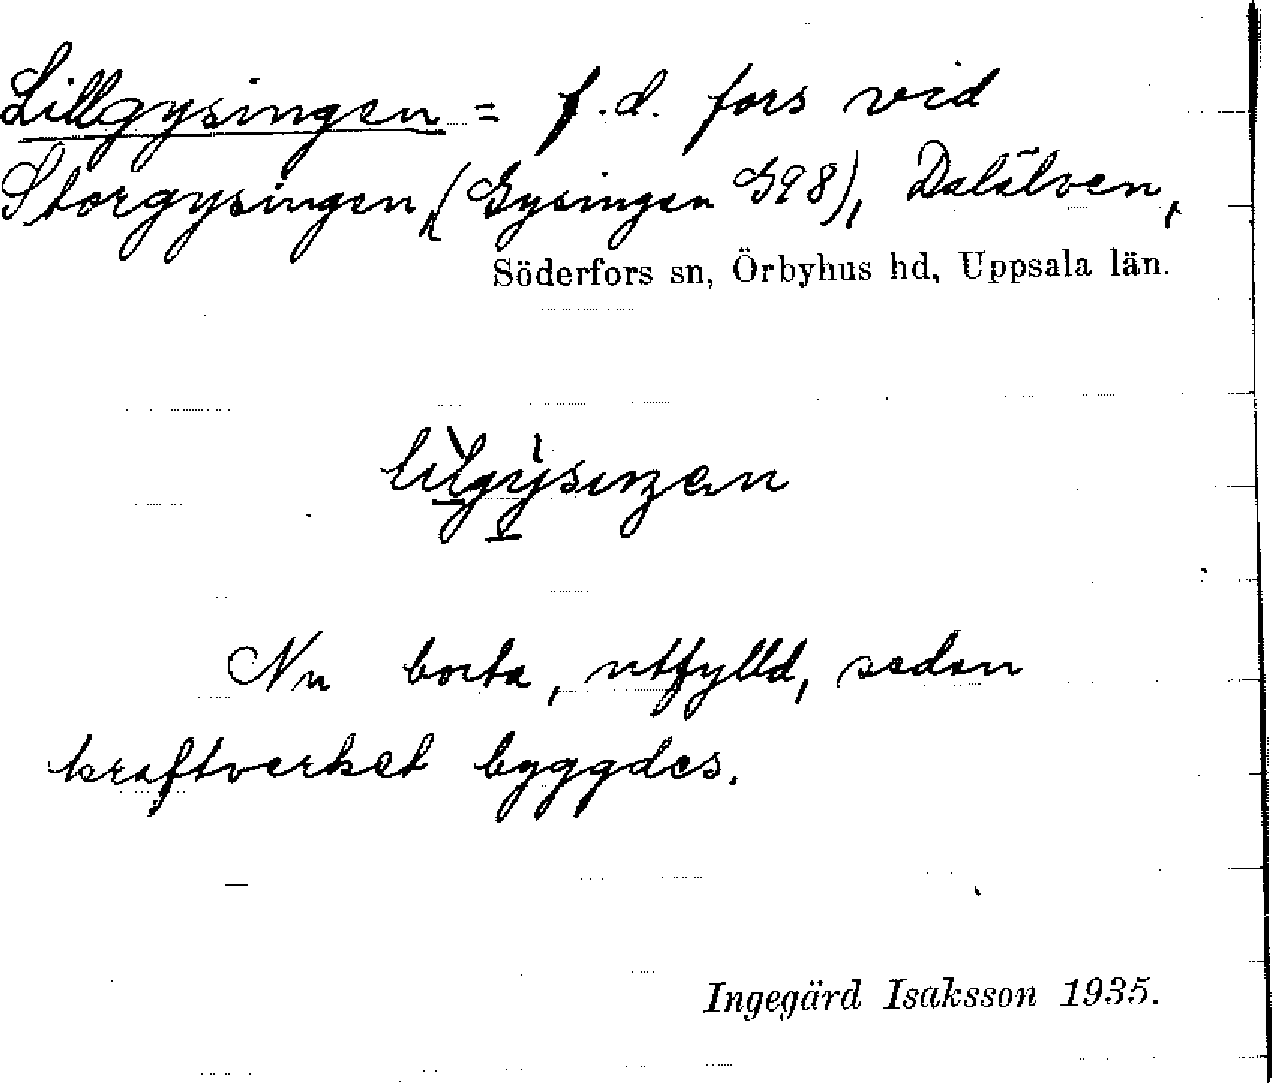 Lillgysingen = f.d. fors vid
Storgysingen, (Gysingen G98), Dalälven,
Söderfors sn, Örbyhus hd, Uppsala län.
Nu borta, utfylld, sedan
kraftverket byggdes.
Ingegärd Isaksson 1935.